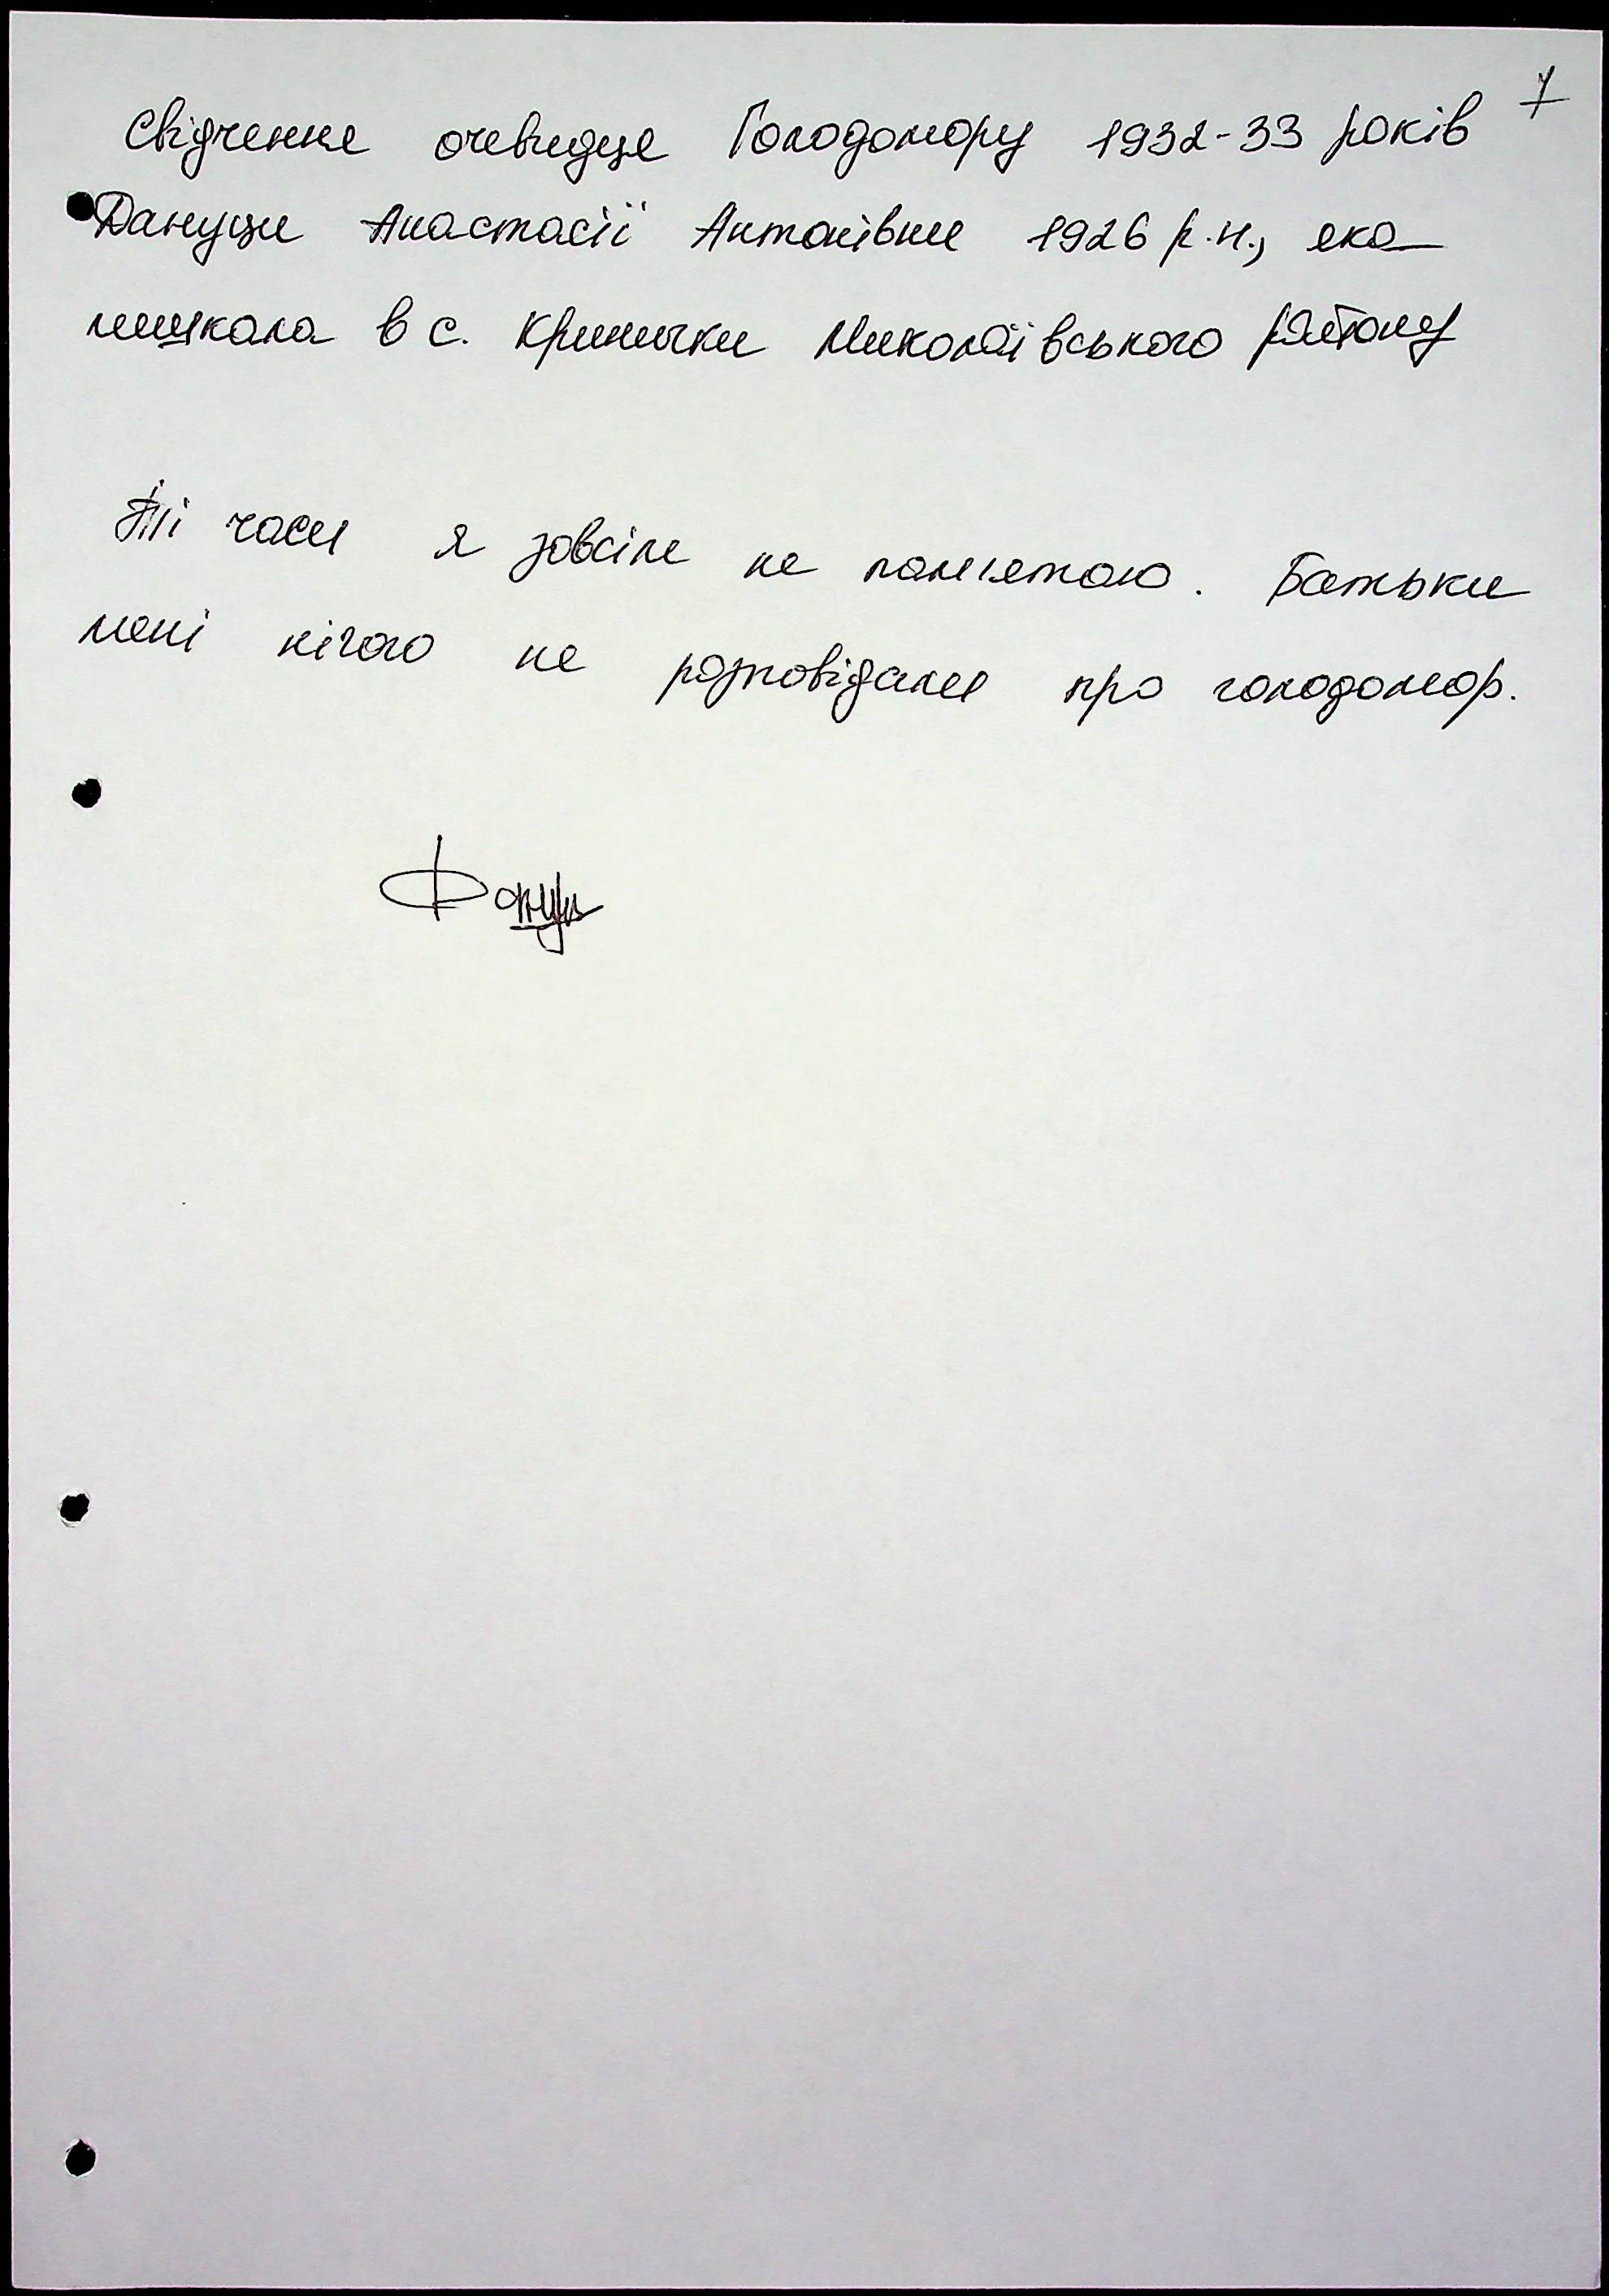 7
Свідчення очевидця Голодомору 1932-33 років
Дануци Анастасії Антонівни 1926 р.н., яка
мешкала в с. Кринички Миколаївського району
Ті часи я зовсім не пам'ятаю. Батьки
мені нічого не розповідали про голодомор.